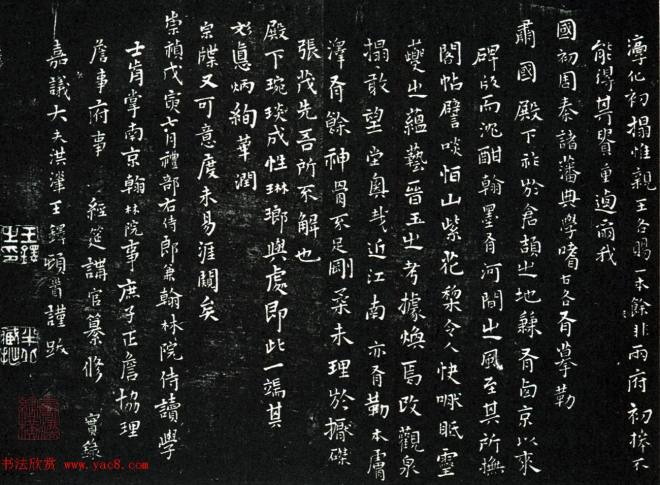 淳化初搨惟親王各賜一本餘非兩府初探不
能得其貴重迺爾我
國初因奉諸藩典學嗜古各有摹勒
肅國殿下社於倉頡之地鎳有鹵京以來
碑版而沈酣翰墨有河間之風至其所撫
閣帖譬啖恒山紫花梨令人快啝眡靈
夔之蘊藝晉玉之考據煥焉改觀泉
搨敢望堂奧哉近江南亦有勒本膚
澤有餘神骨不足剛柔未理於攈磔
張茂先吾所不解也
殿下琬琰成性琳瑯與處即此一端其
宗牒又可意度未易涯闚矣
懸炳絢華潤
崇禎戊寅七月禮部右侍郎兼翰林院侍讀學
士前掌南京翰林院事庶子正詹協理
詹事府事 經筵講官纂修 實錄
嘉議大夫洪灋王鐸頓首謹跋
书法欣赏 www.yac8.com